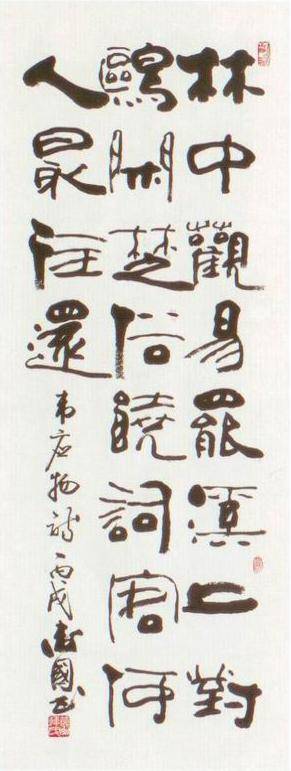 林中觀易罷溪上對
鷗閑楚俗饒詞客何
人最往還
韦应物詩丙戌國书